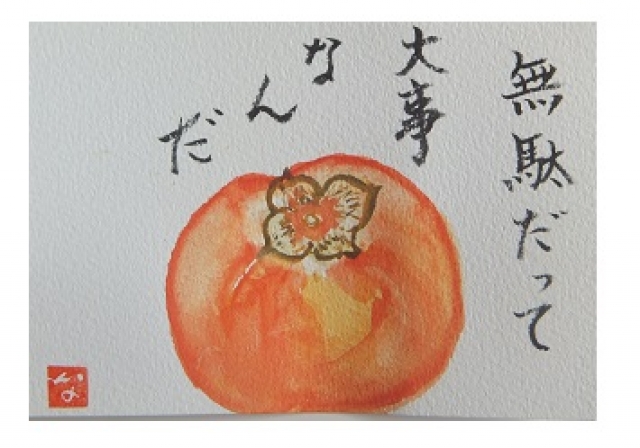 無駄だって
大事
なんだ